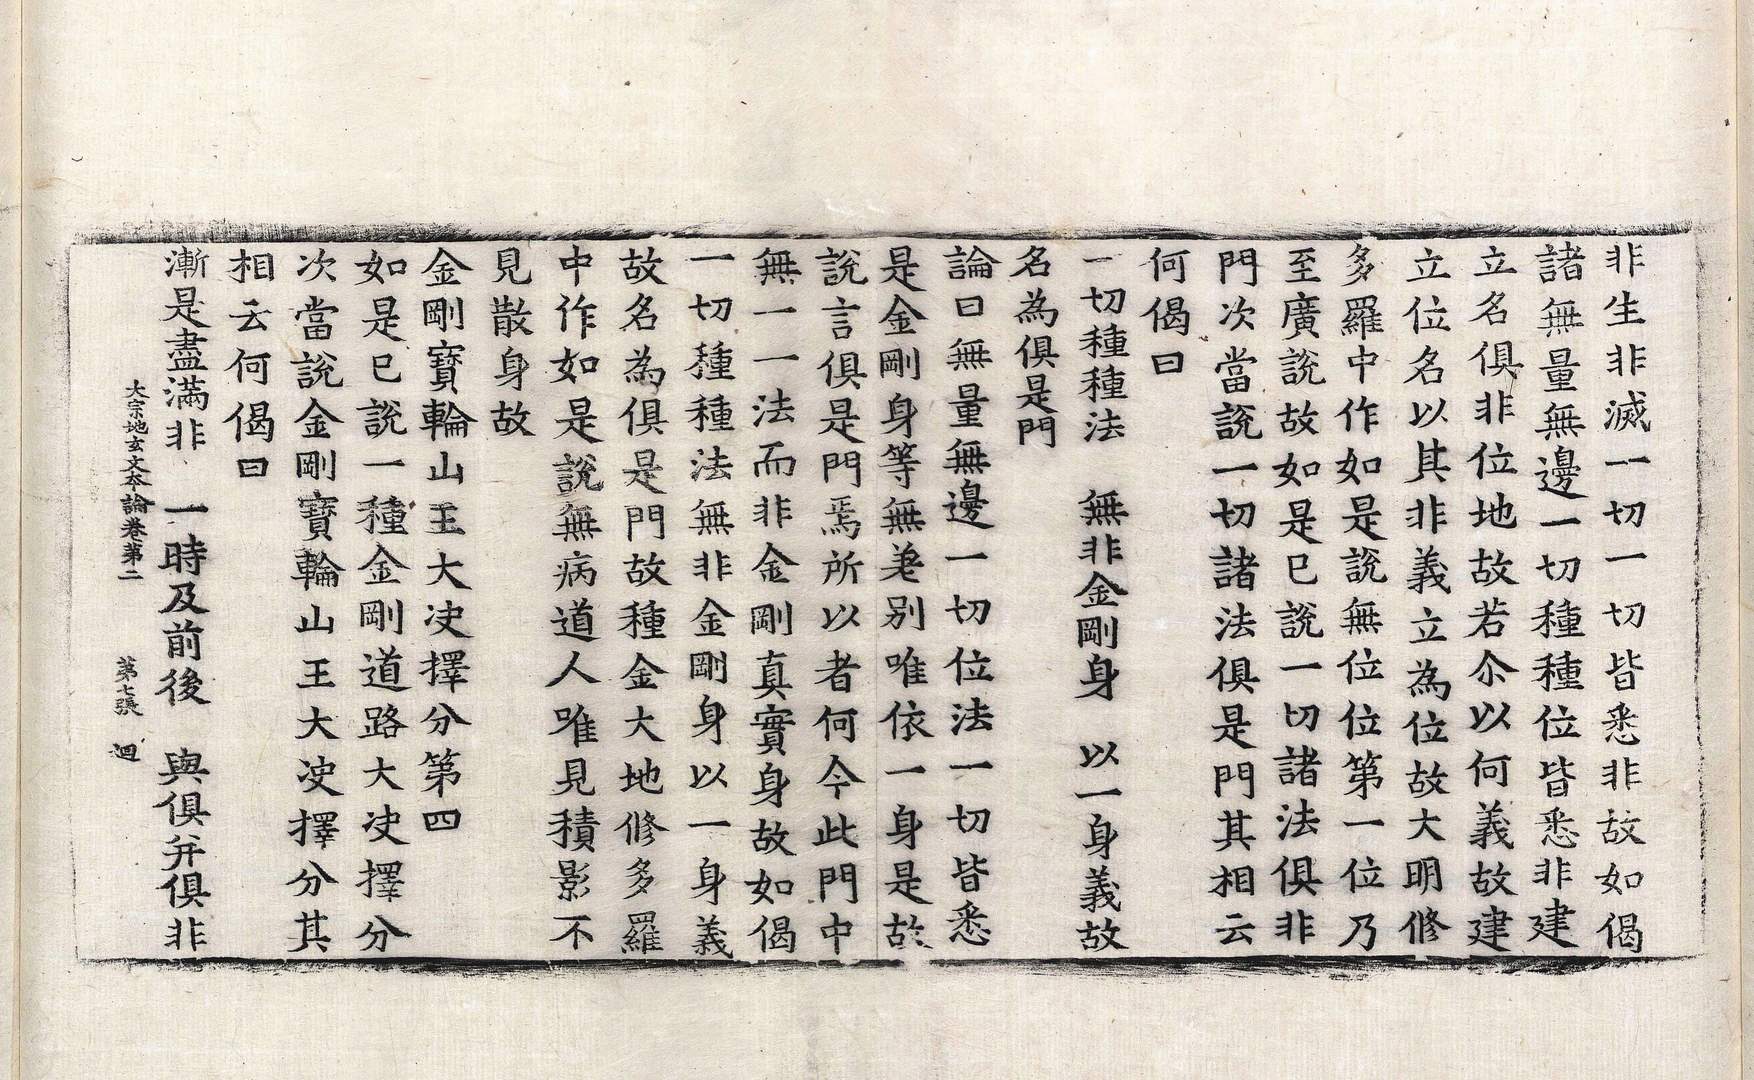 非生非滅一切一切皆悉非故如偈
諸無量無邊一切種種位皆悉非建
立名俱非位地故若尒以何義故建
立位名以其非義立為位故大明修
多羅中作如是說無位位第一位乃
至廣說故如是已說一切諸法俱非
門次當說一切諸法俱是門其相云
何偈曰
一切種種法　無非金剛身　以一身義故
名為俱是門
論曰無量無邊一切位法一切皆悉
是金剛身等無差別唯依一身是故
說言俱是門焉所以者何今此門中
無一一法而非金剛真實身故如偈
一切種種法無非金剛身以一身義
故名為俱是門故種金大地修多羅
中作如是說無病道人唯見積影不
見散身故
金剛寶輪山王大决擇分第四
如是已說一種金剛道路大决擇分
次當說金剛寶輪山王大决擇分其
相云何偈曰
漸是盡滿非　一時及前後　與俱并俱非
大宗地玄文本論卷第二　第七張　迴